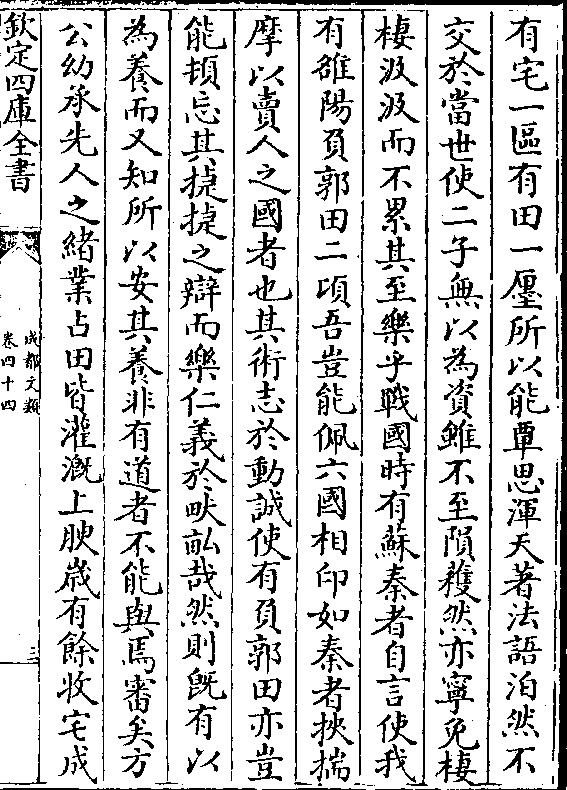 有宅一區有田一㕓所以能覃思渾天著法語泊然不
交於當世使二子無以為資雖不至隕穫然亦寧免棲
棲汲汲而不累其至樂乎戰國時有蘇秦者自言使我
有雒陽負郭田二頃吾豈能佩六國相印如秦者挾揣
摩以賣人之國者也其術志於動誠使有負郭田亦豈
能頓忘其捷捷之辯而樂仁義於畎畝哉然則既有以
為養而又知所以安其養非有道者不能與焉審矣方
公幼承先人之緒業占田皆灌溉上腴歲有餘收宅成
欽定四庫全書
成都文類
卷四十四
三